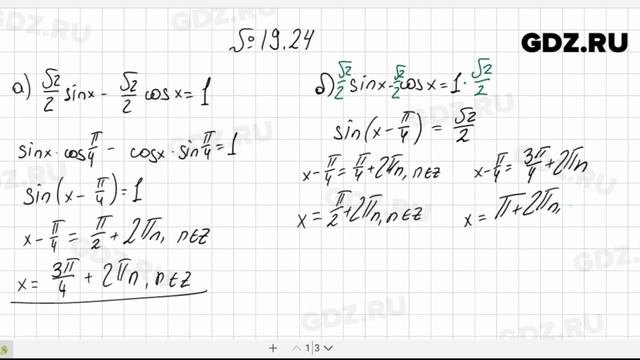 №19.24
GDZ.RU
а) √2/2 sinx - √2/2 cosx = 1
sinx · cos π/4 - cosx · sin π/4 = 1
sin(x - π/4) = 1
x - π/4 = π/2 + 2πn, n∈Z
x = 3π/4 + 2πn, n∈Z
б) √2/2 sinx - √2/2 cosx = 1 · √2/2
sin(x - π/4) = √2/2
x - π/4 = π/4 + 2πn, n∈Z
x = π/2 + 2πn, n∈Z
x - π/4 = 3π/4 + 2πn
x = π + 2πn,
1|3